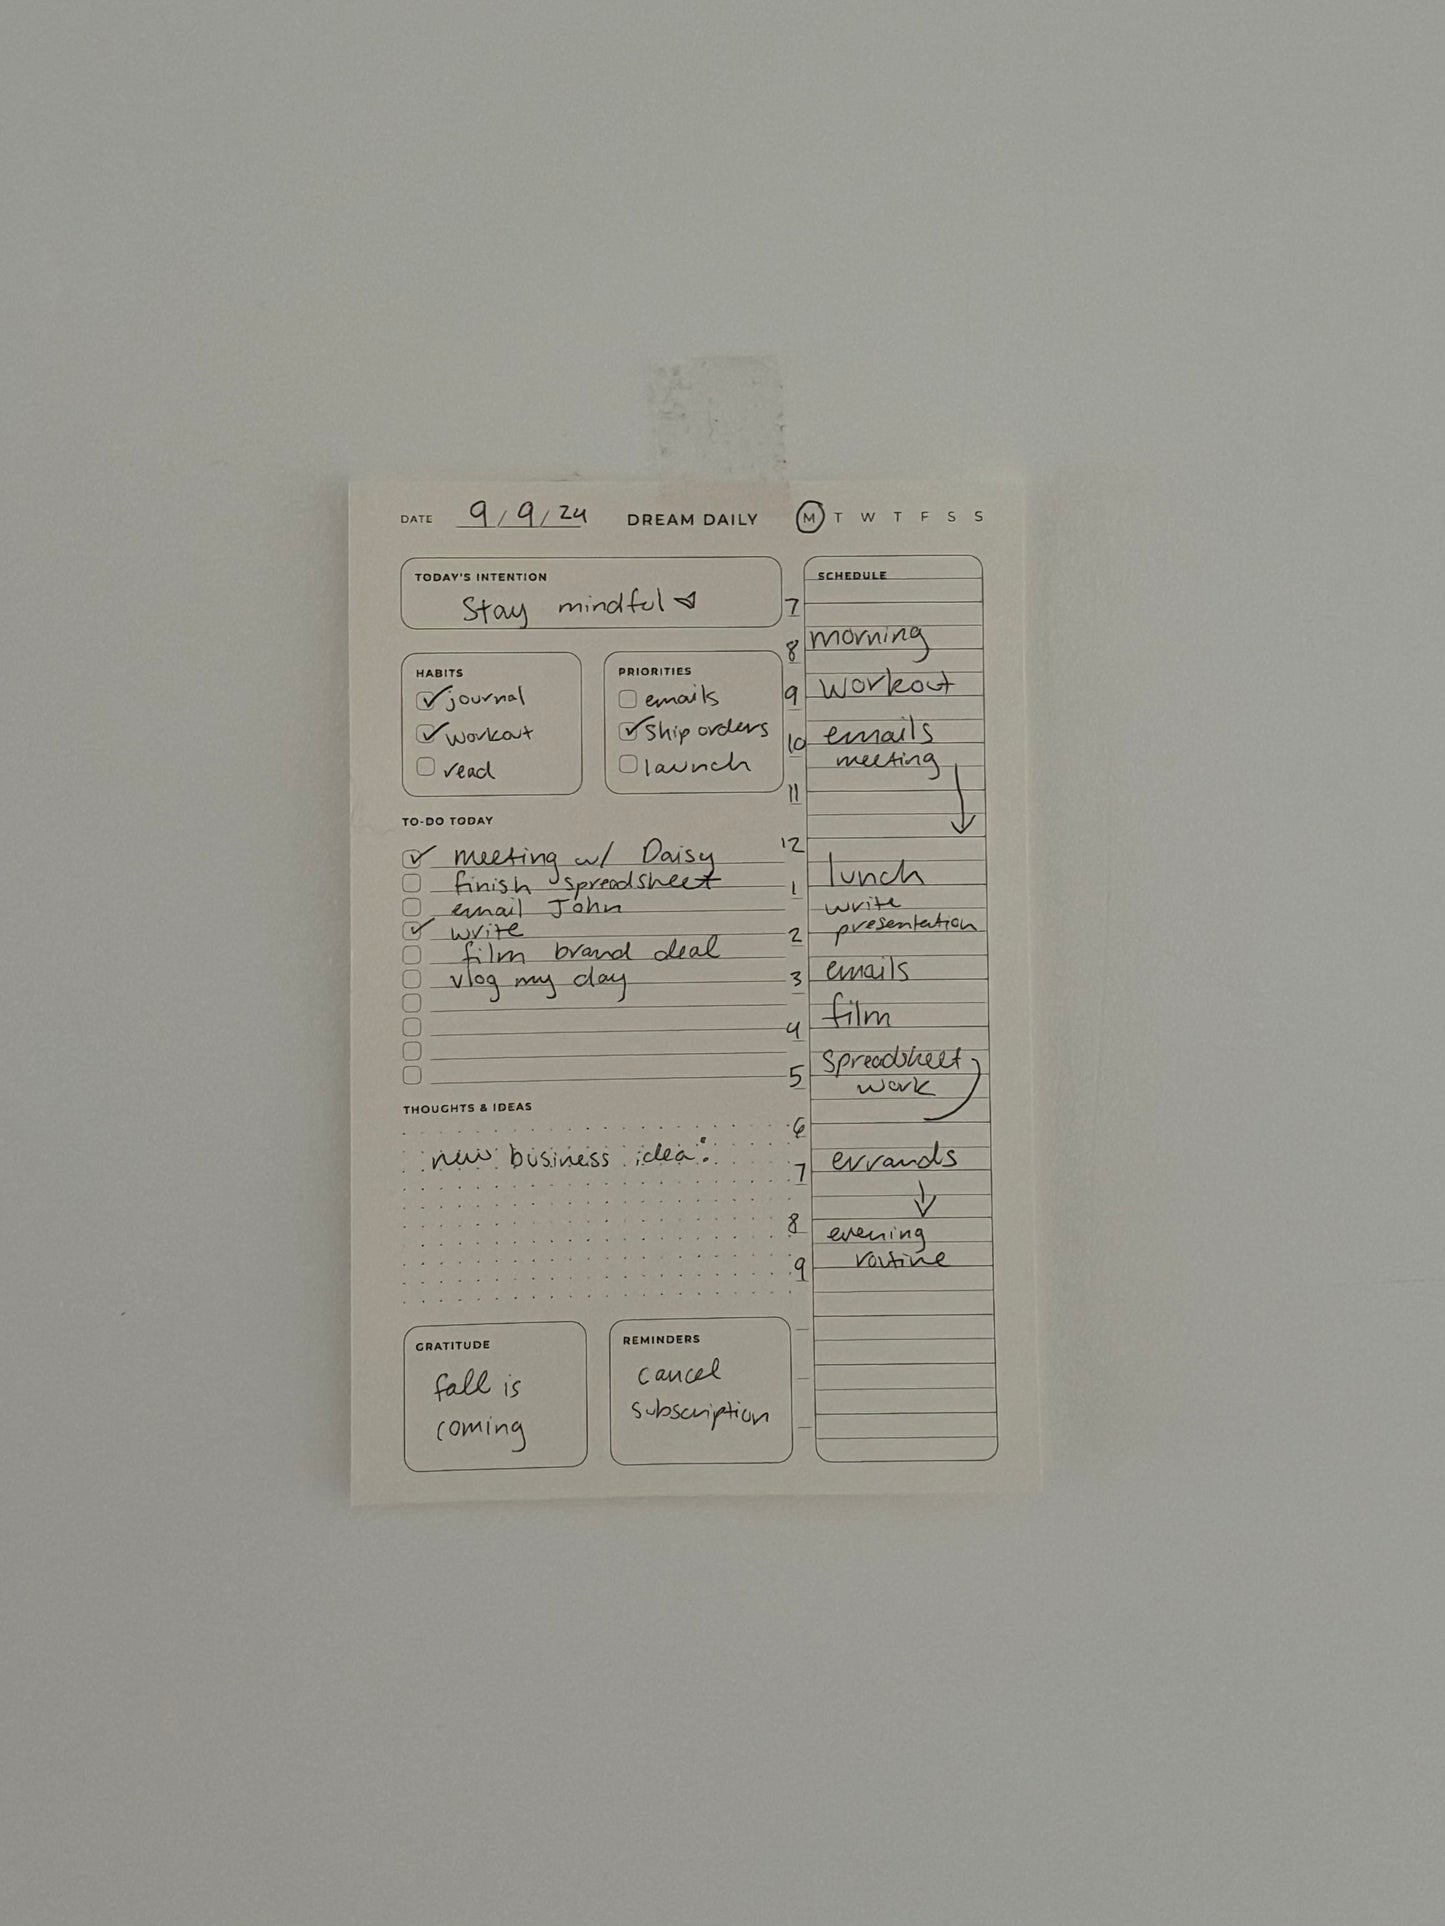 DATE 9/9/24 DREAM DAILY M T W T F S S
TODAY'S INTENTION
Stay mindful
HABITS
journal
workout
read
PRIORITIES
emails
ship orders
launch
TO-DO TODAY
meeting w/ Daisy
finish spreadsheet
email John
write
film brand deal
vlog my day
THOUGHTS & IDEAS
new business idea:
GRATITUDE
fall is
coming
REMINDERS
cancel
subscription
SCHEDULE
7
8 morning
9 workout
10 emails
meeting
11
12
lunch
1
write
2 presentation
3 emails
film
4
spreadsheet
5 work
6
7 errands
8 evening
routine
9